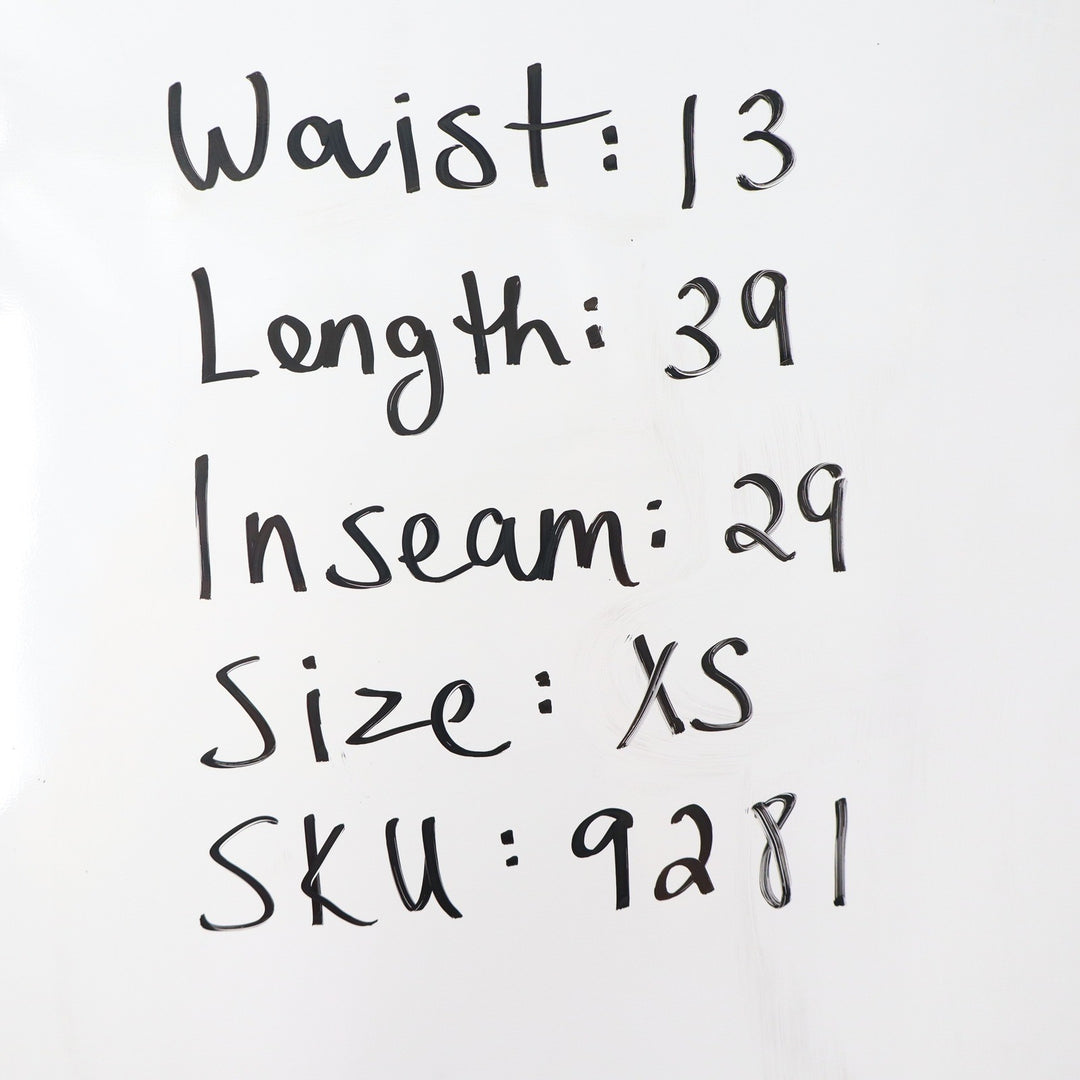 Waist: 13
Length: 39
Inseam: 29
Size: XS
SKU: 9281